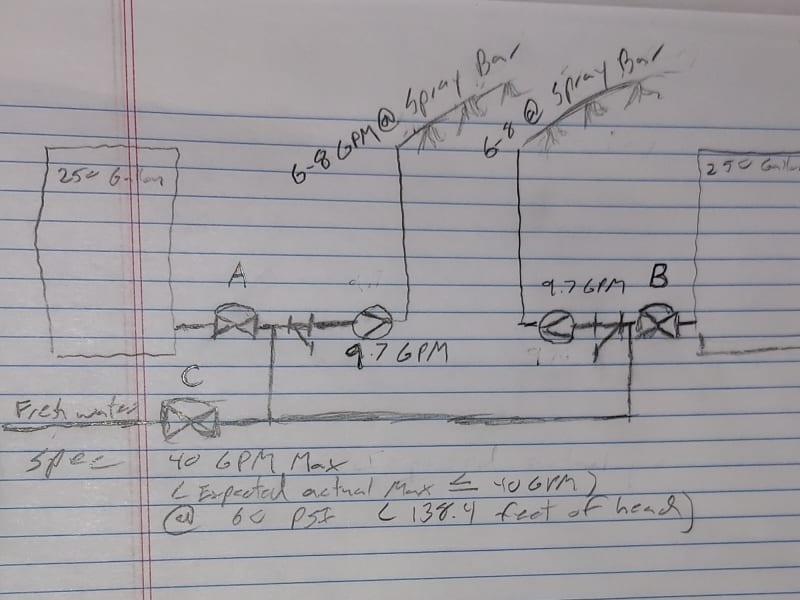 6-8 GPM @ Spray Bar
6-8 @ Spray Bar
250 Gallon
250 Gallon
A
B
9.7 GPM
9.7 GPM
C
Fresh water
Spec 40 GPM Max
( Expected actual Max ≤ 40 GPM )
@ 60 PSI ( 138.4 feet of head )